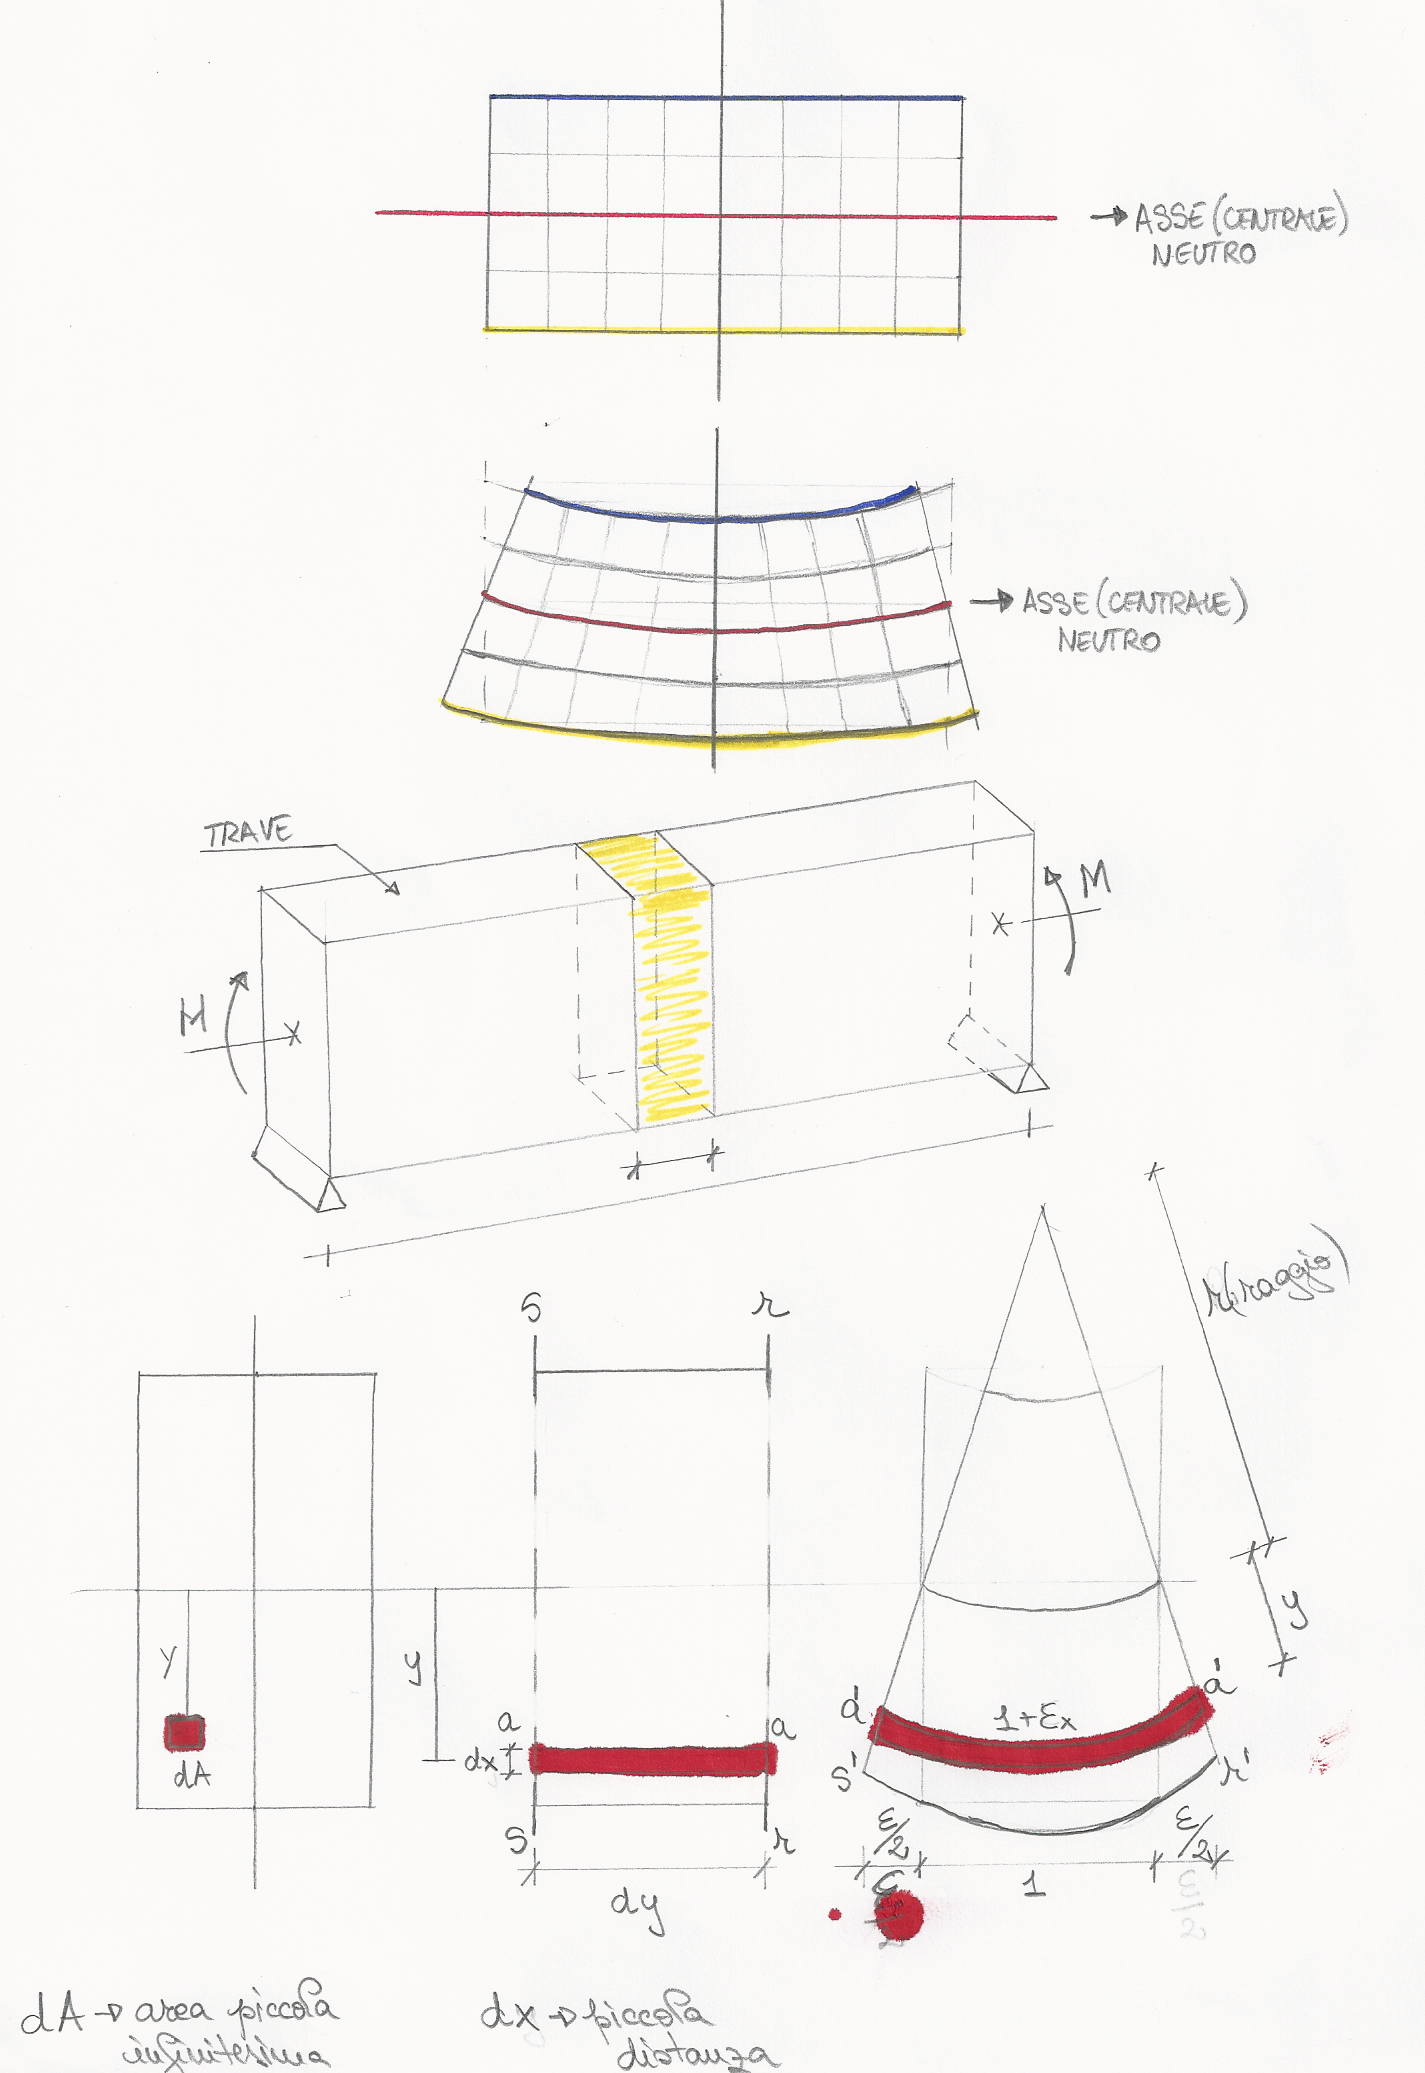 → ASSE (CENTRALE)
NEUTRO
→ ASSE (CENTRALE)
NEUTRO
TRAVE
M
M
r (raggio)
S
r
y
y
y
dA
a
a
dx
a'
a'
1+εx
S'
r'
S
r
ε/2
1
ε/2
dy
ε/2
ε/2
dA → area piccola
infinitesima
dx → piccola
distanza